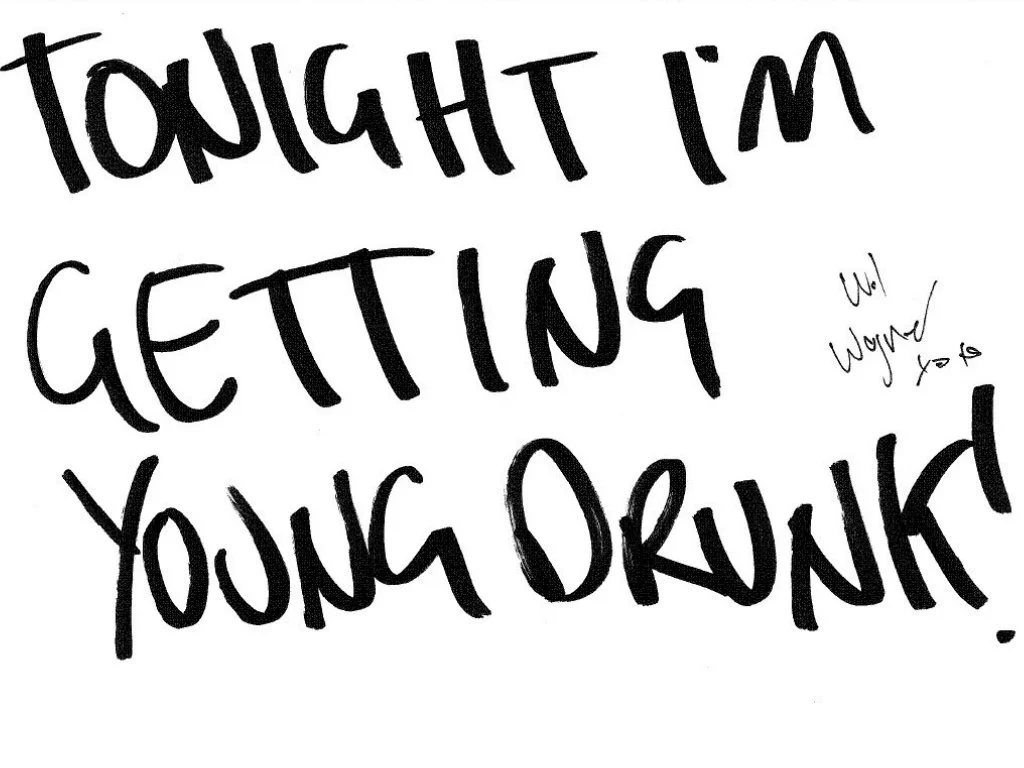 TONIGHT I'M
GETTING
YOUNG DRUNK!
Wagner